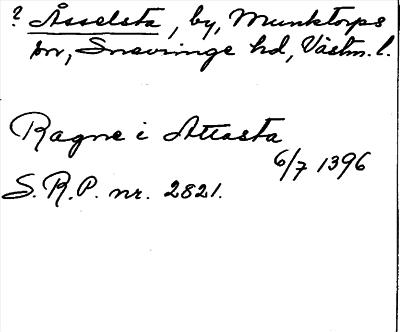 ? Åsselsta, by, Munktorps
sn, Snevringe hd, Västm. l.
Ragne i Attasta
6/7 1396
S.R.P. nr. 2821.